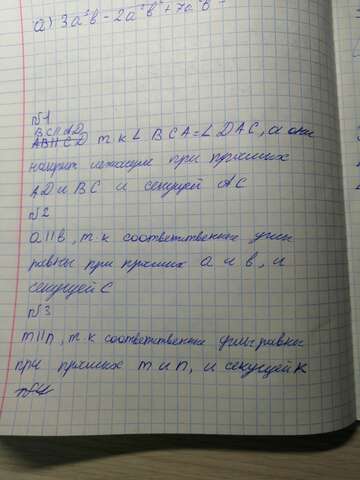 а) 3a²b - 2a²b² + 7a²b -
№1
BC||AD
AB||CD т к ∠ BCA = ∠ DAC, а они
лежащие при прямых
AD и BC и секущей AC
№2
a||b, т. к соответственные углы
равны при прямых a и b, и
секущей c
№3
m||n, т к соответственные углы равны
при прямых m и n, и секущей k
№4